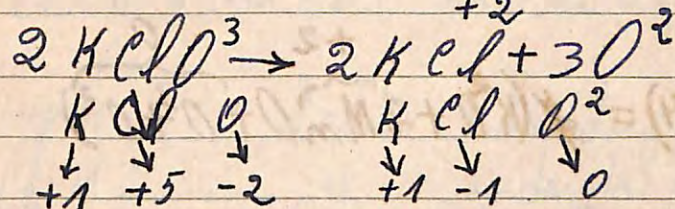 +2
2 KClO³ → 2 KCl + 3O²
K Cl O K Cl O²
↓ ↘ ↘ ↘ ↘ ↘
+1 +5 -2 +1 -1 0